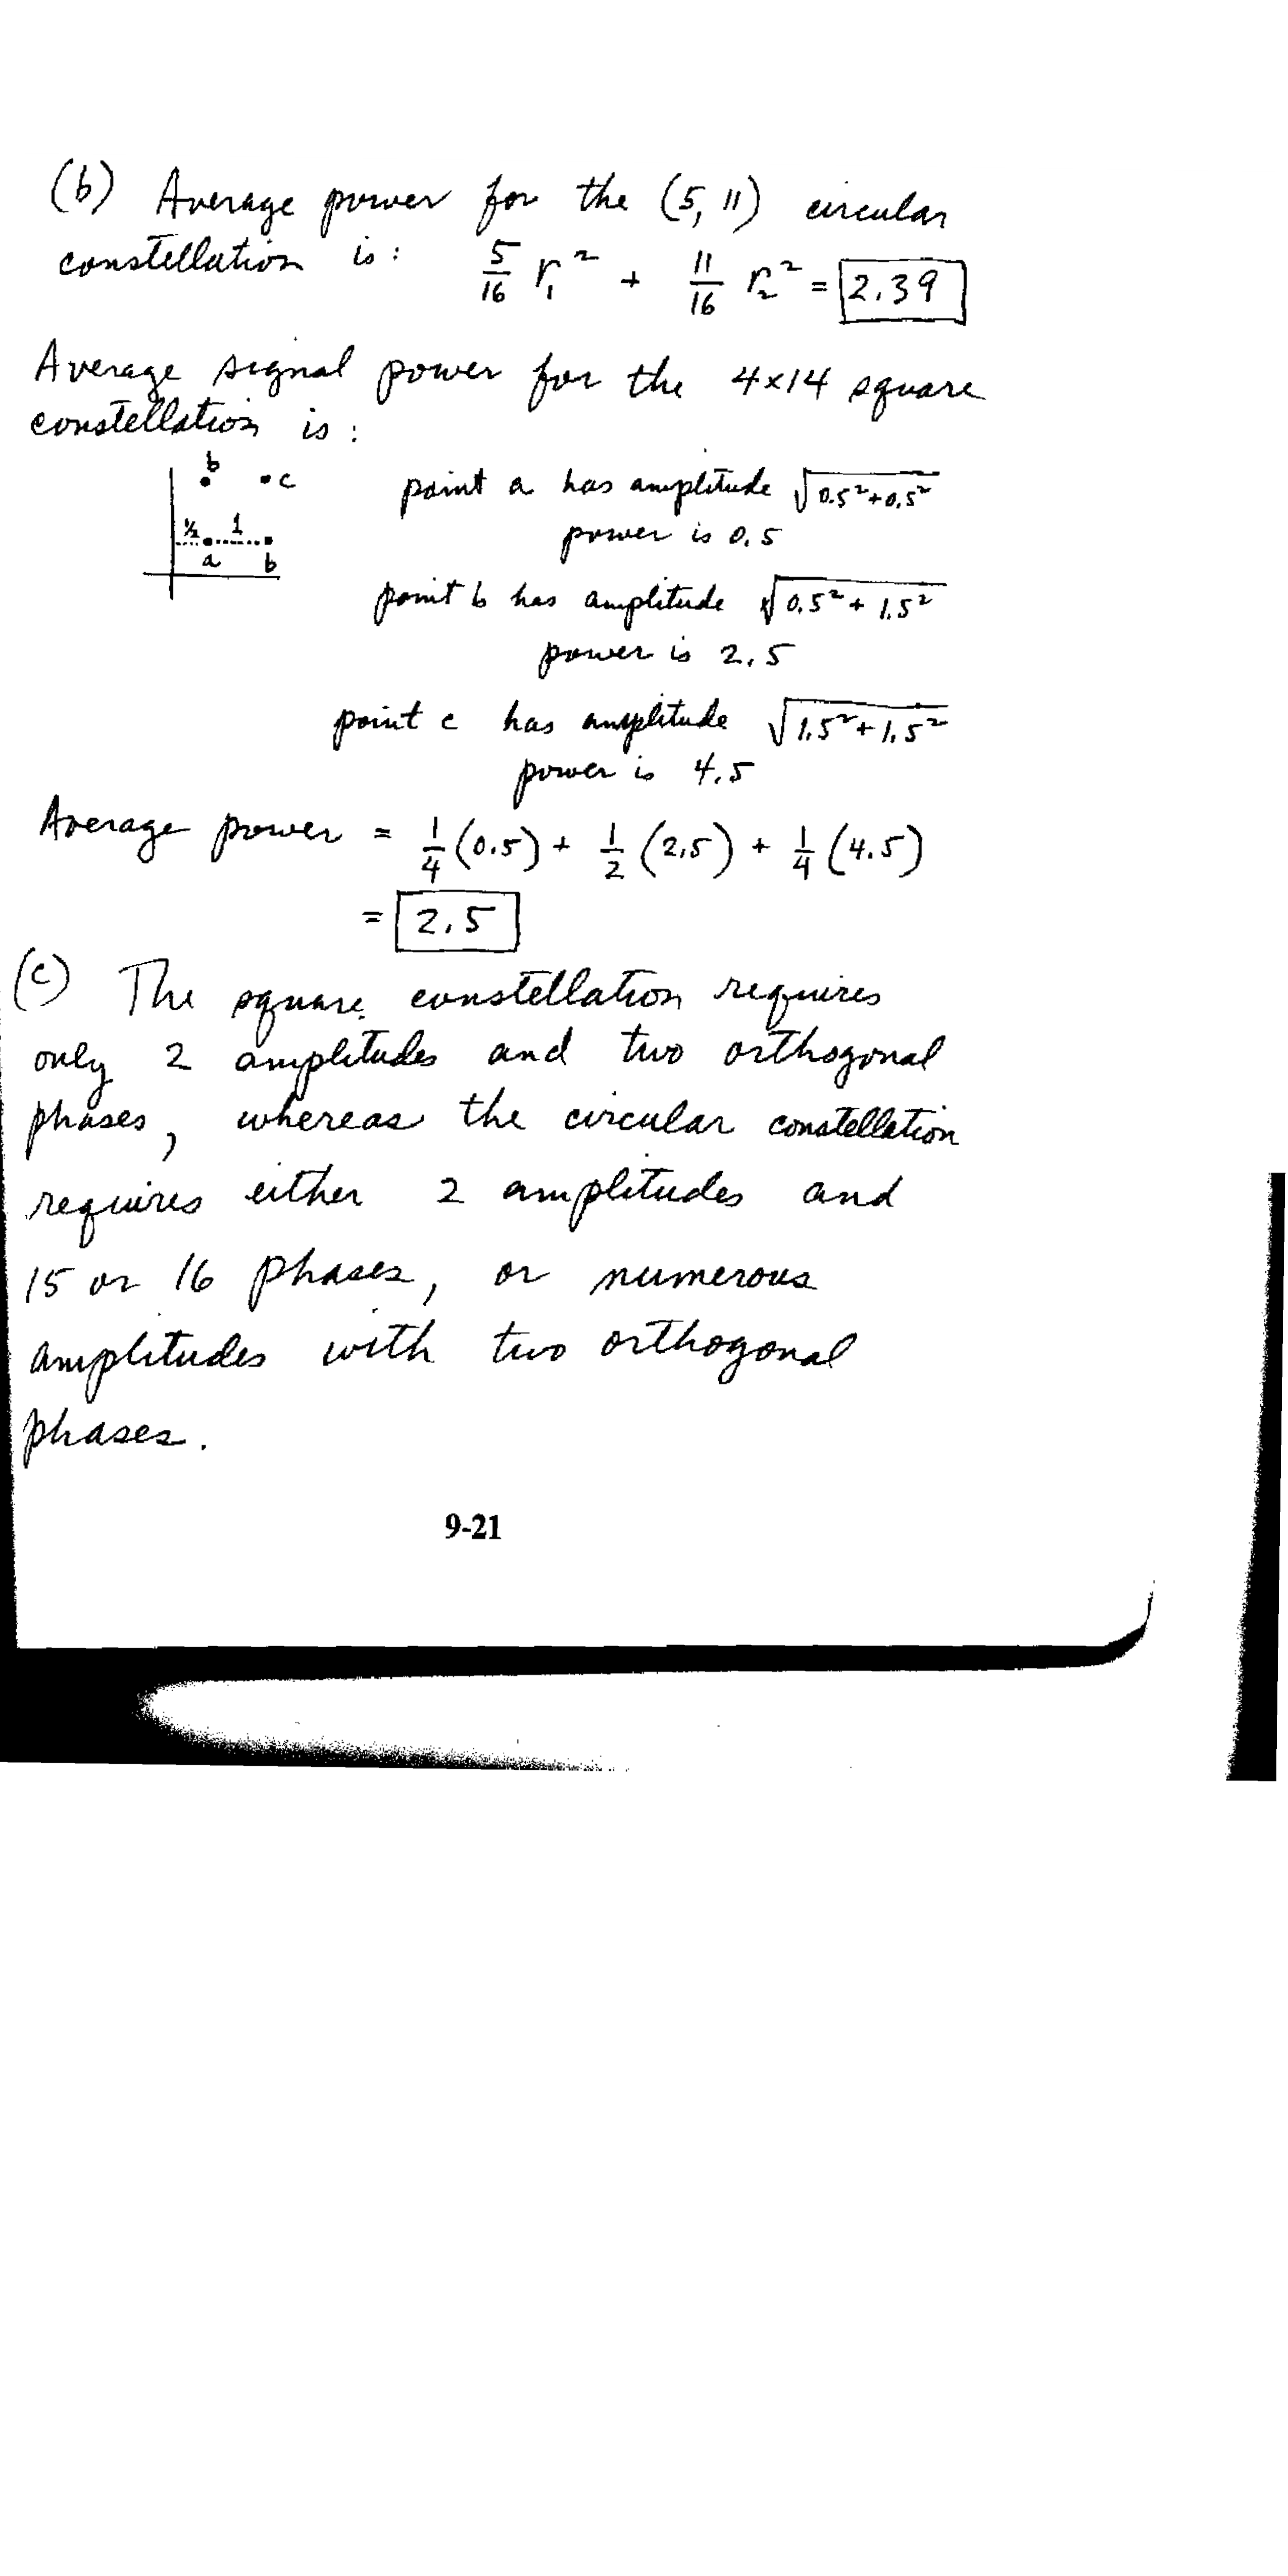 (b) Average power for the (5, 11) circular
constellation is: 5/16 r₁² + 11/16 r₂² = 2.39
Average signal power for the 4x14 square
constellation is:
b
c
½ 1
a b
point a has amplitude √(0.5²+0.5²)
power is 0.5
point b has amplitude √(0.5² + 1.5²)
power is 2.5
point c has amplitude √(1.5²+1.5²)
power is 4.5
Average power = 1/4 (0.5) + 1/2 (2.5) + 1/4 (4.5)
= 2.5
(c) The square constellation requires
only 2 amplitudes and two orthogonal
phases, whereas the circular constellation
requires either 2 amplitudes and
15 or 16 phases, or numerous
amplitudes with two orthogonal
phases.
9-21